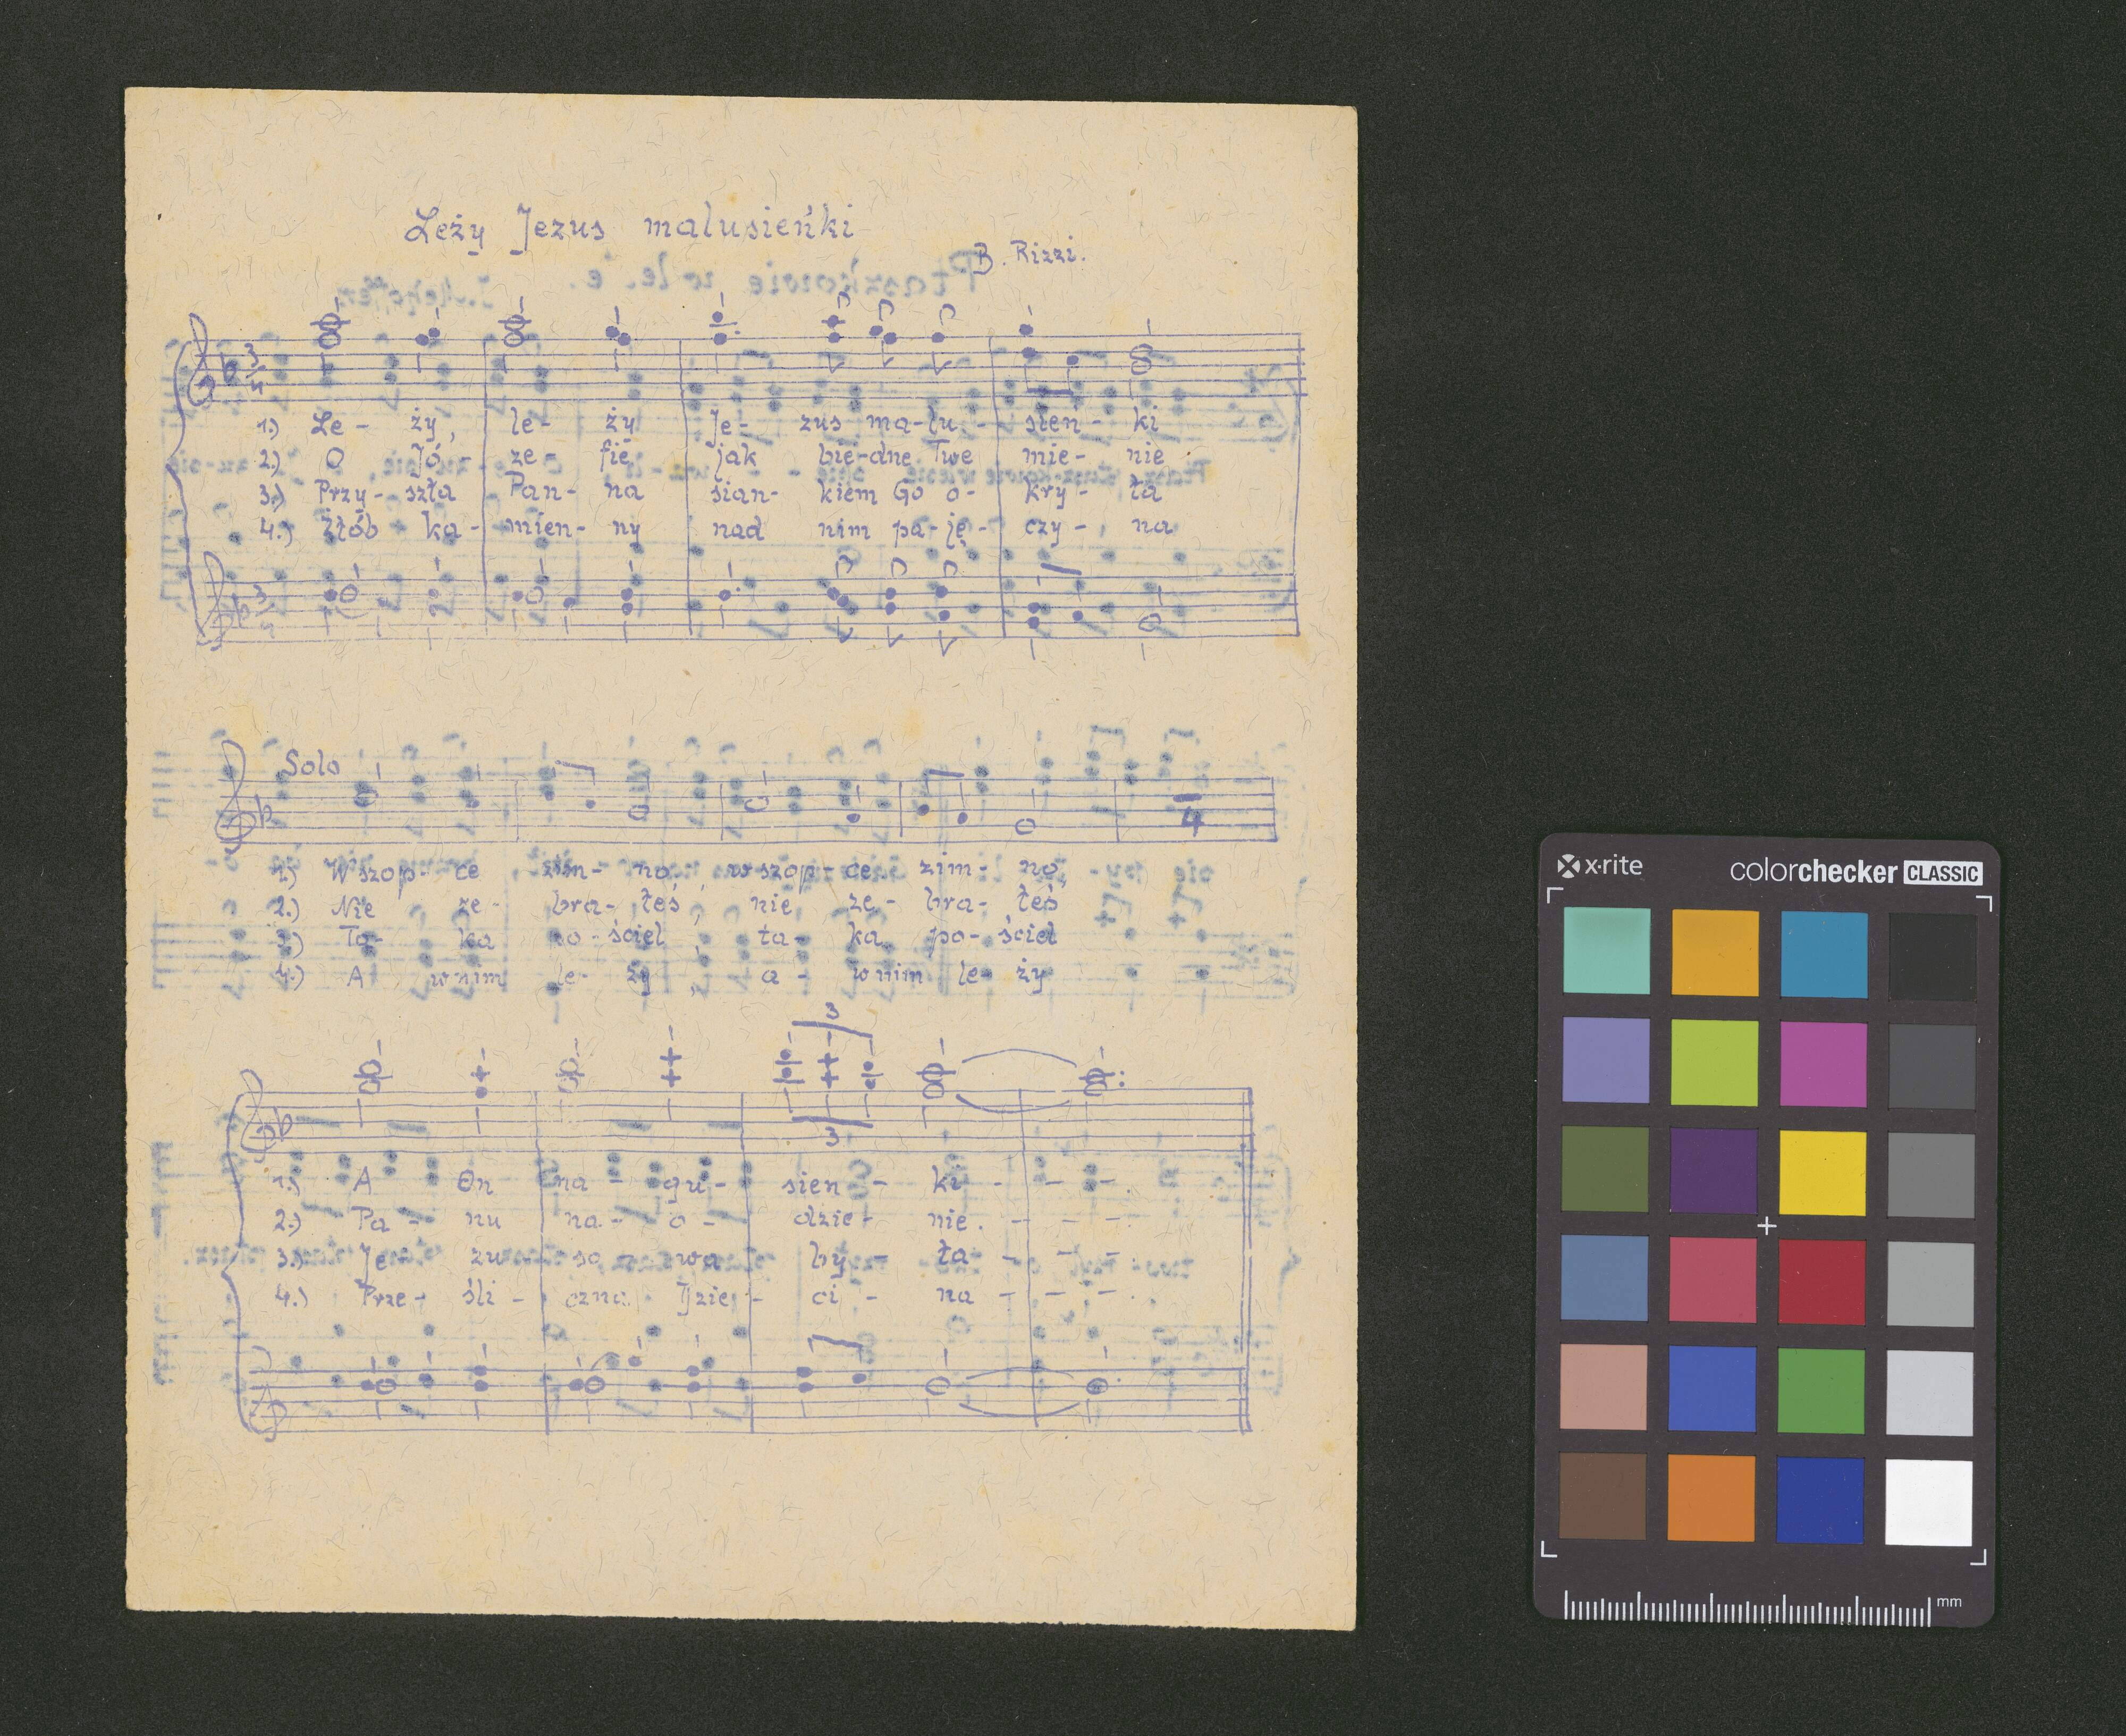 Leży Jezus malusieńki
B. Rizzi.
3 4
1.) Le - ży, le - ży Je - zus ma - lu - sień - ki
2.) O Jó - ze - fie jak bie - dne Twe mie - nie
3.) Przy - szła Pan - na sian - kiem Go o - kry - ła
4.) Żłób ka - mien - ny nad nim pa - ję - czy - na
3
Solo
4
1.) W szop - ce zim - no, w szop - ce zim - no,
2.) Nie ze - bra - łeś, nie ze - bra - łeś
3.) Ta - ka po - ściel, ta - ka po - ściel
4.) A w nim le - ży, a - w nim le - ży
3
3
1.) A On na - gu - sien - ki - - - .
2.) Pa - nu na - o - dzie - nie. - - - .
3.) Je - zu so - wa by - ła - - -
4.) Prze - śli - czna Dzie - ci - na - - - .
x·rite
colorchecker CLASSIC
mm